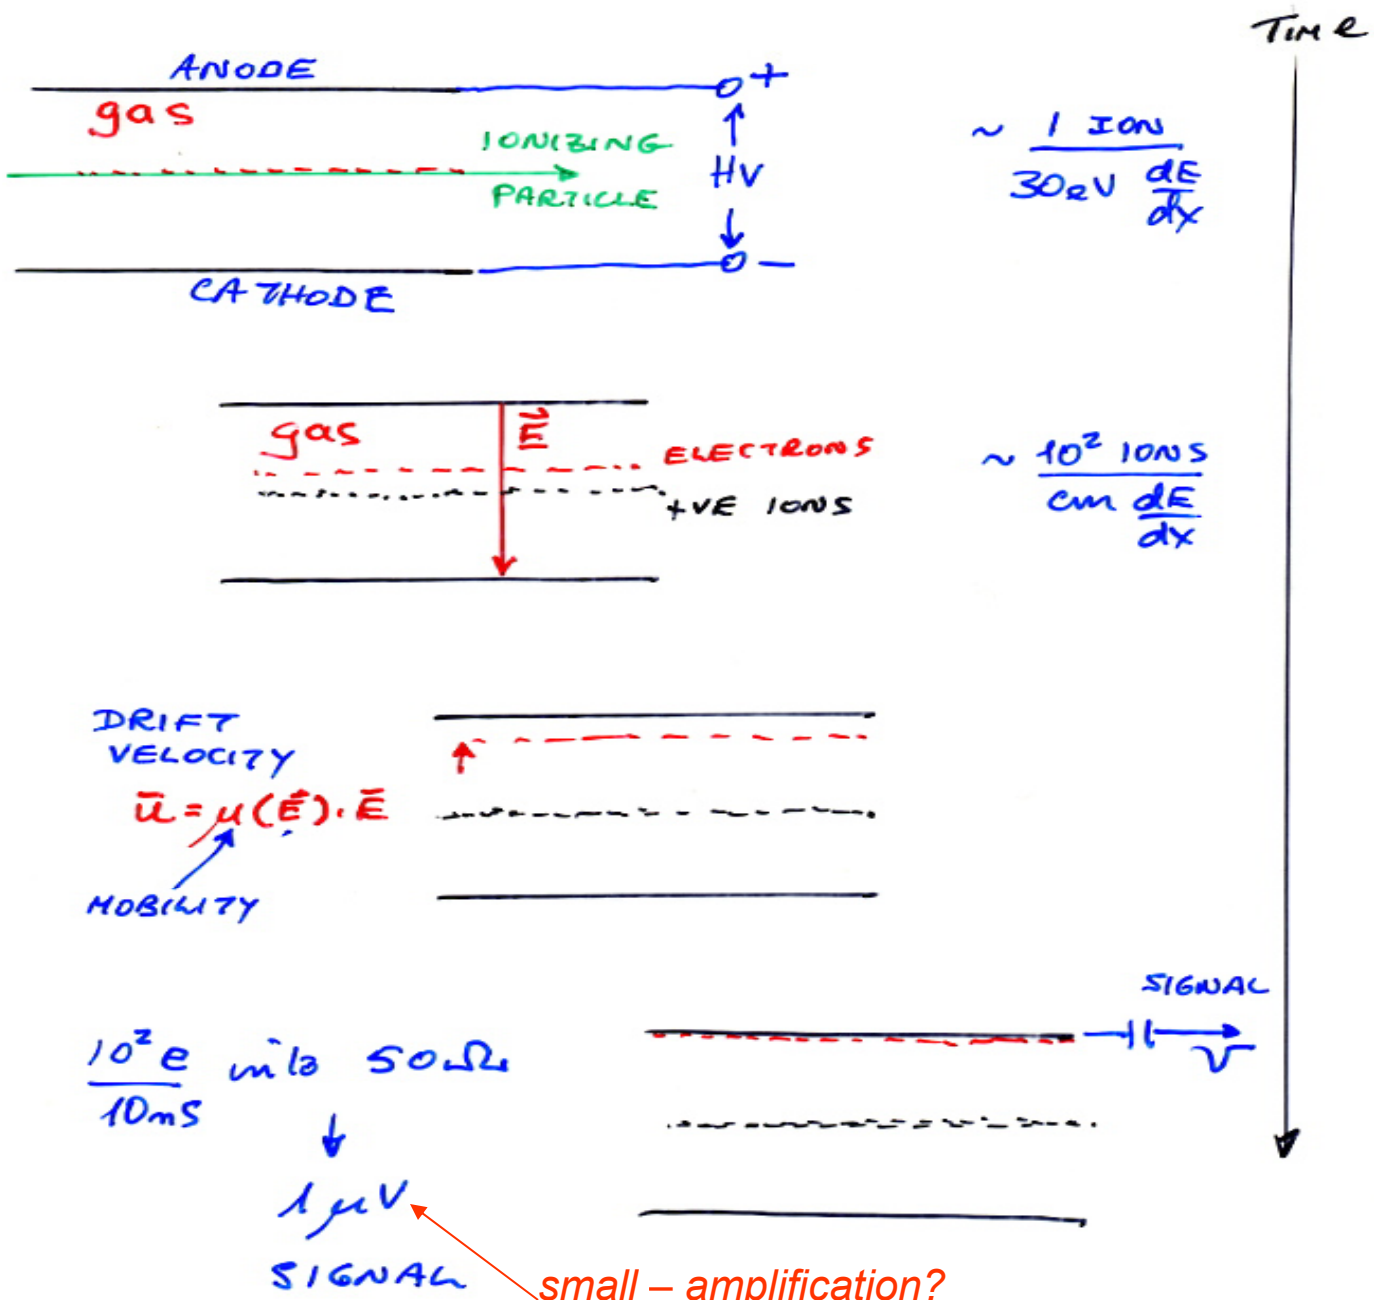 TIME
ANODE
+
gas
IONIZING
PARTICLE
HV
~ 1 ION
30eV dE
dx
−
CATHODE
gas
E
ELECTRONS
+VE IONS
~ 10² IONS
cm dE
dx
DRIFT
VELOCITY
ū = μ(E).Ē
MOBILITY
SIGNAL
10² e into 50Ω
10nS
1 μV
SIGNAL
small – amplification?